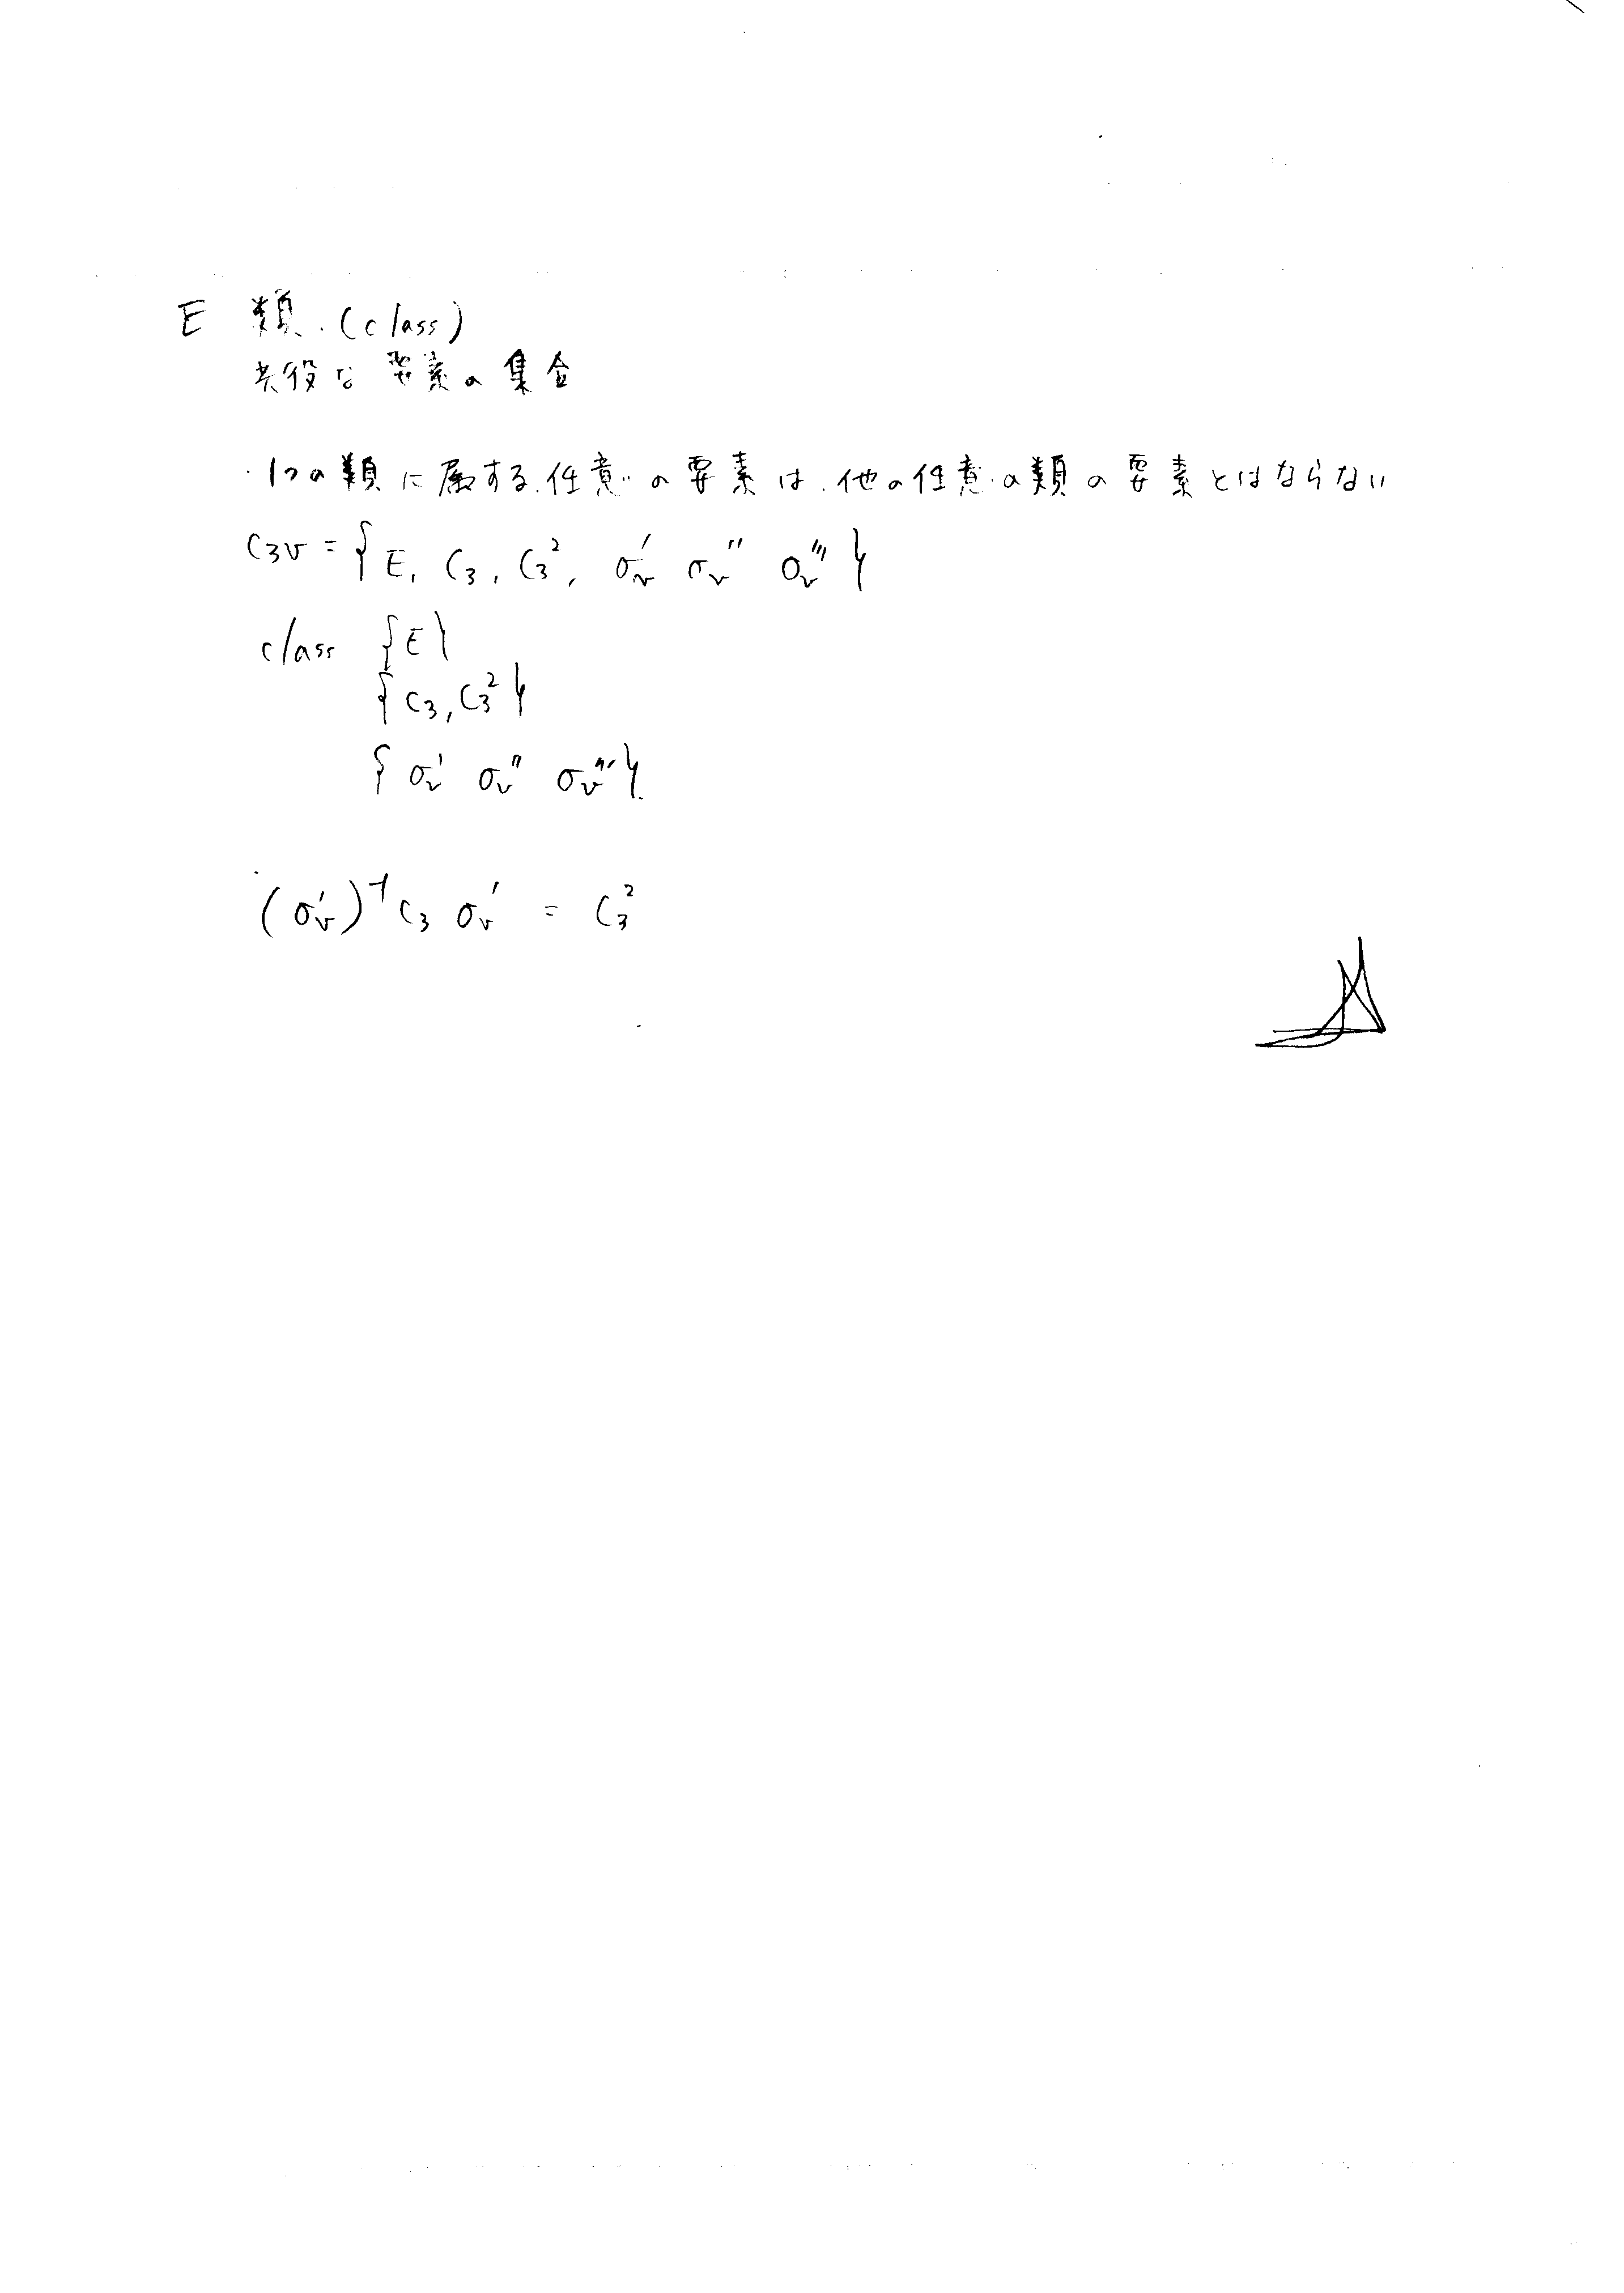 E 類.(class)
共役な要素の集合
・1つの類に属する任意の要素は他の任意の類の要素とはならない
C₃v = { E, C₃, C₃², σv' σv'' σv''' }
class {E}
{C₃, C₃²}
{σv' σv'' σv'''}
(σv')⁻¹ C₃ σv' = C₃²